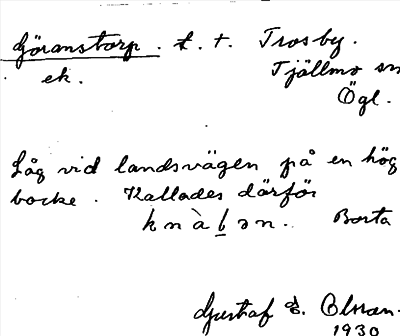 Göranstorp. t. t. Trosby.
ek. Tjällmo sn
Ögl.
Låg vid landsvägen på en hög
backe. Kallades därför
knàbən. Borta
Gustaf E. Olsson.
1930